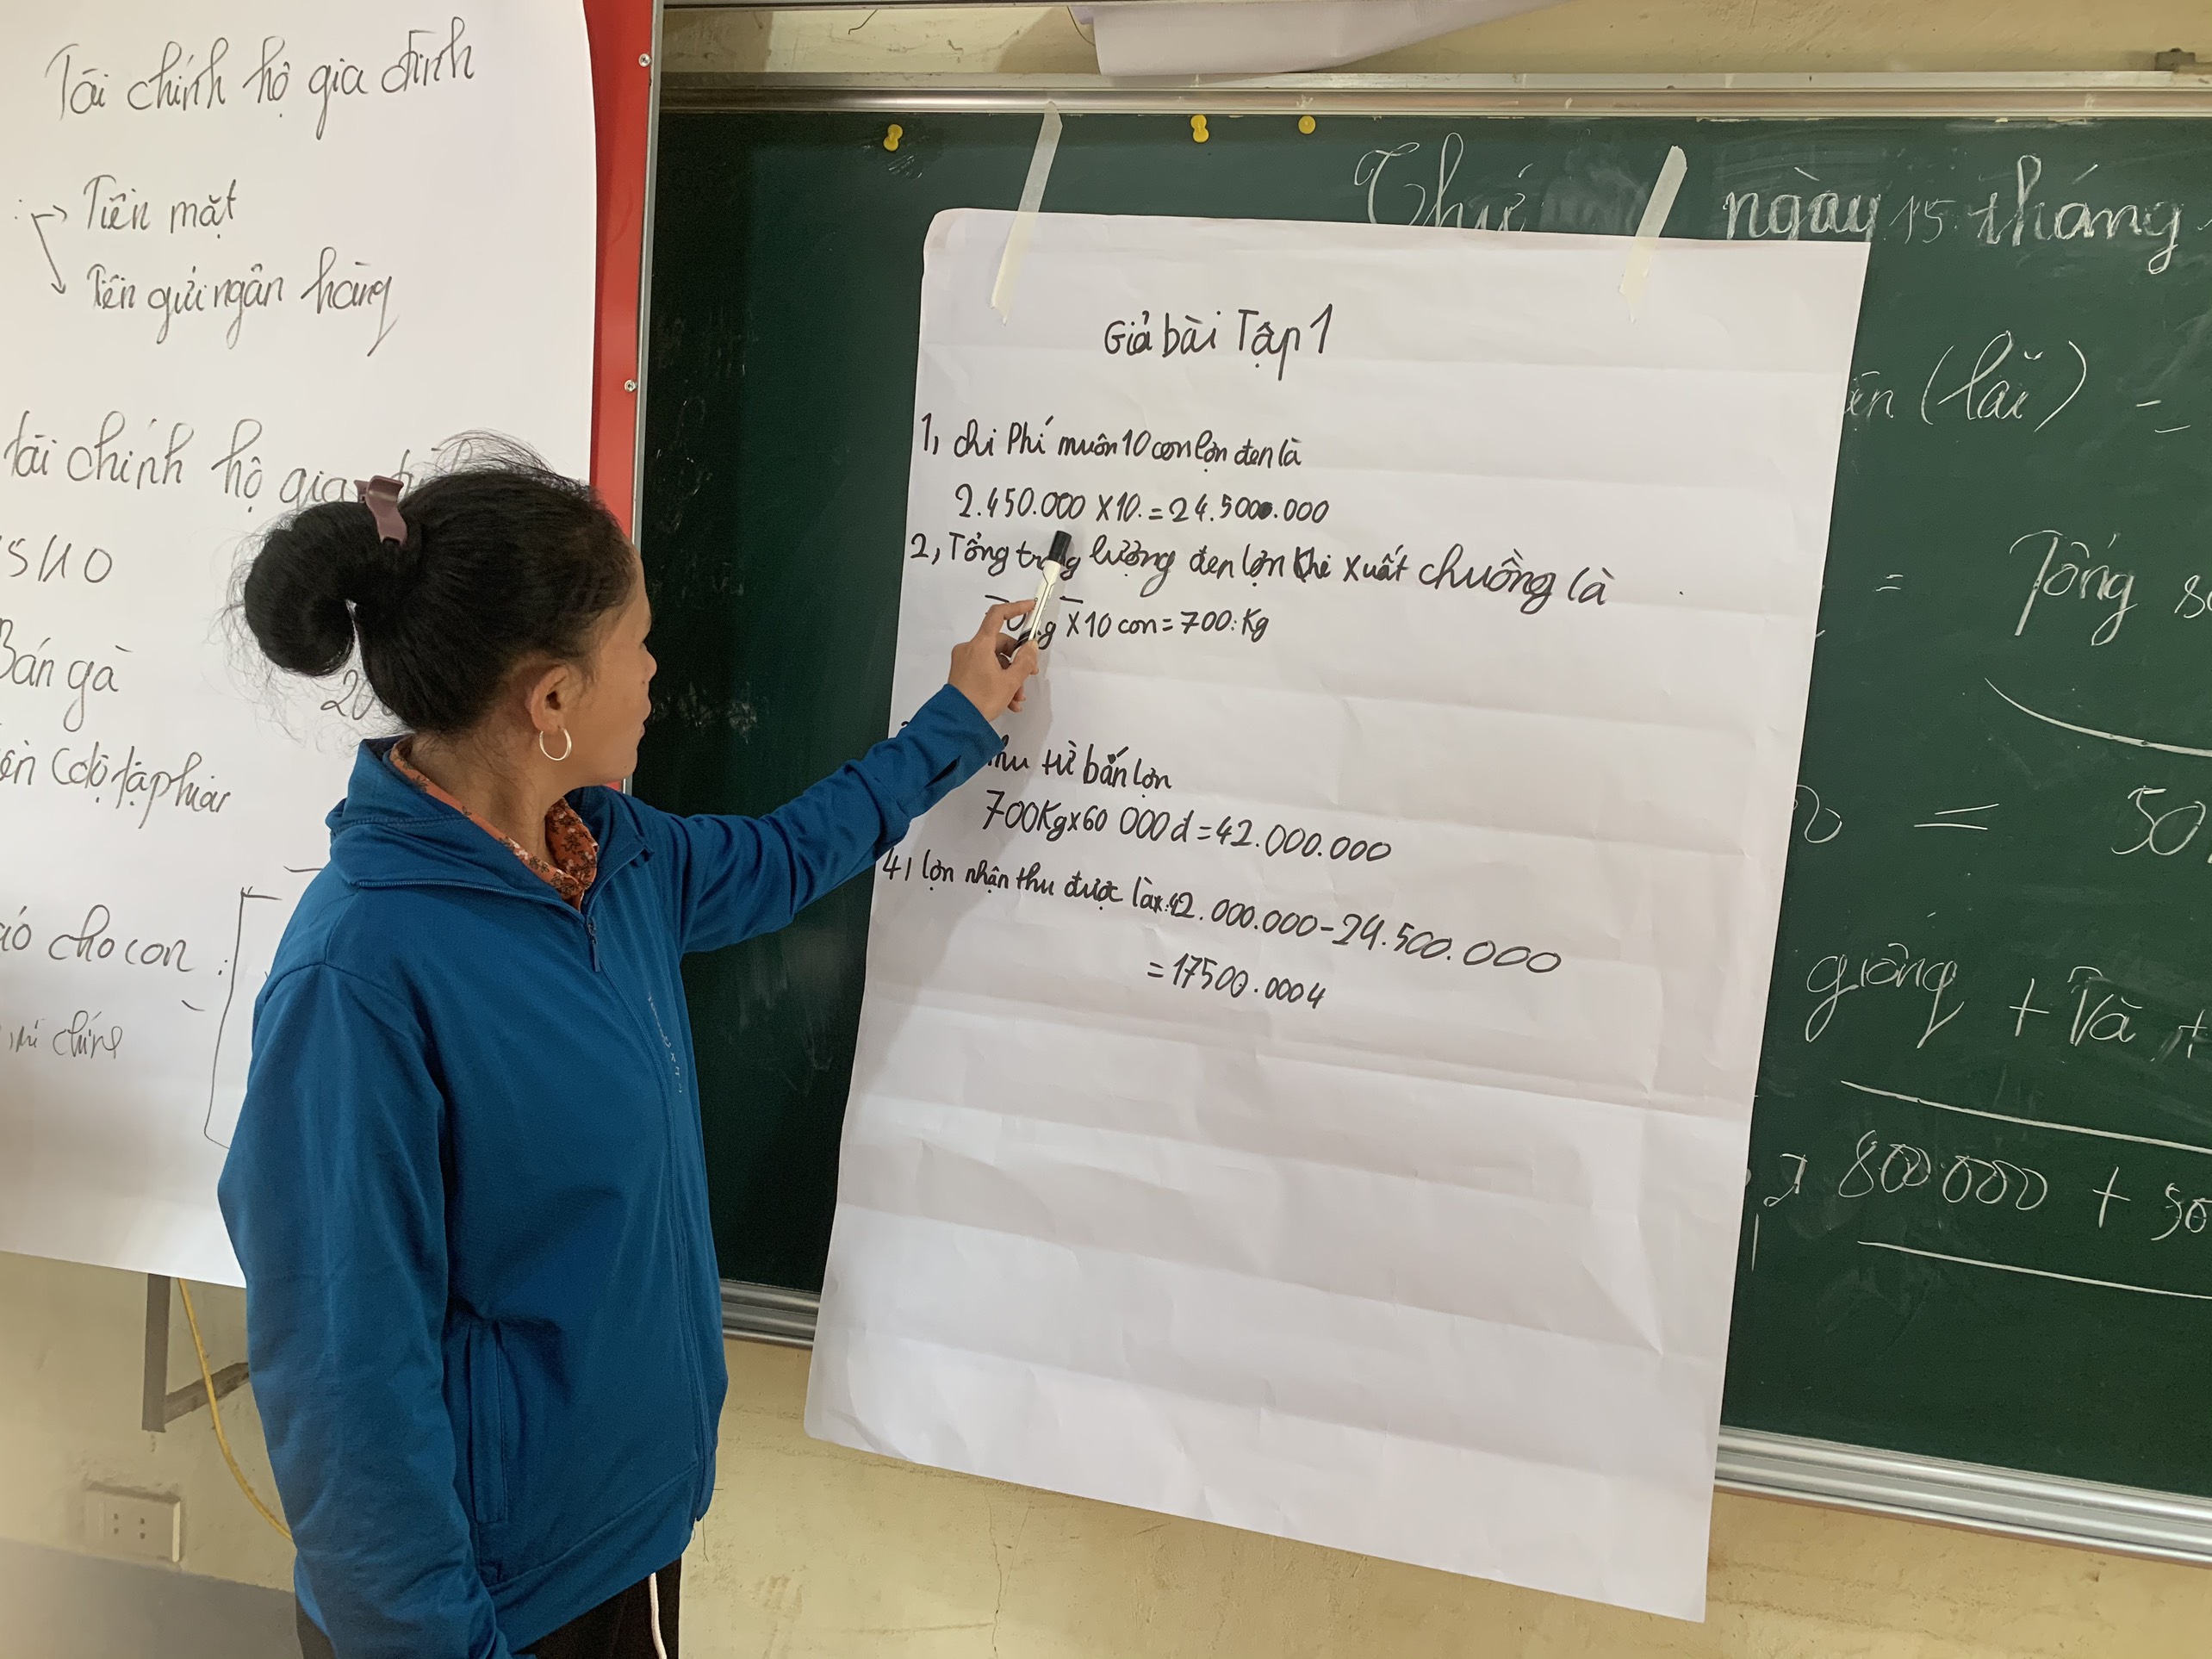 Tài chính hộ gia đình
Tiền mặt
Tiền gửi ngân hàng
tài chính hộ gia
Bán gà
cho con
chính
Giả bài Tập 1
1, chi Phí muôn 10 con lợn đen là
2.450.000 x 10. = 24.500.000
2, Tổng trọng lượng đen lợn khi xuất chuồng là
x 10 con = 700: Kg
thu từ bán lợn
700Kg x 60 000đ = 42.000.000
4, lợn nhận thu được là: 42.000.000 - 24.500.000
= 17500.000đ
Thứ ngày 15 tháng
(lãi) =
= Tổng
= 50
giống + Và +
x 800 000 + 50